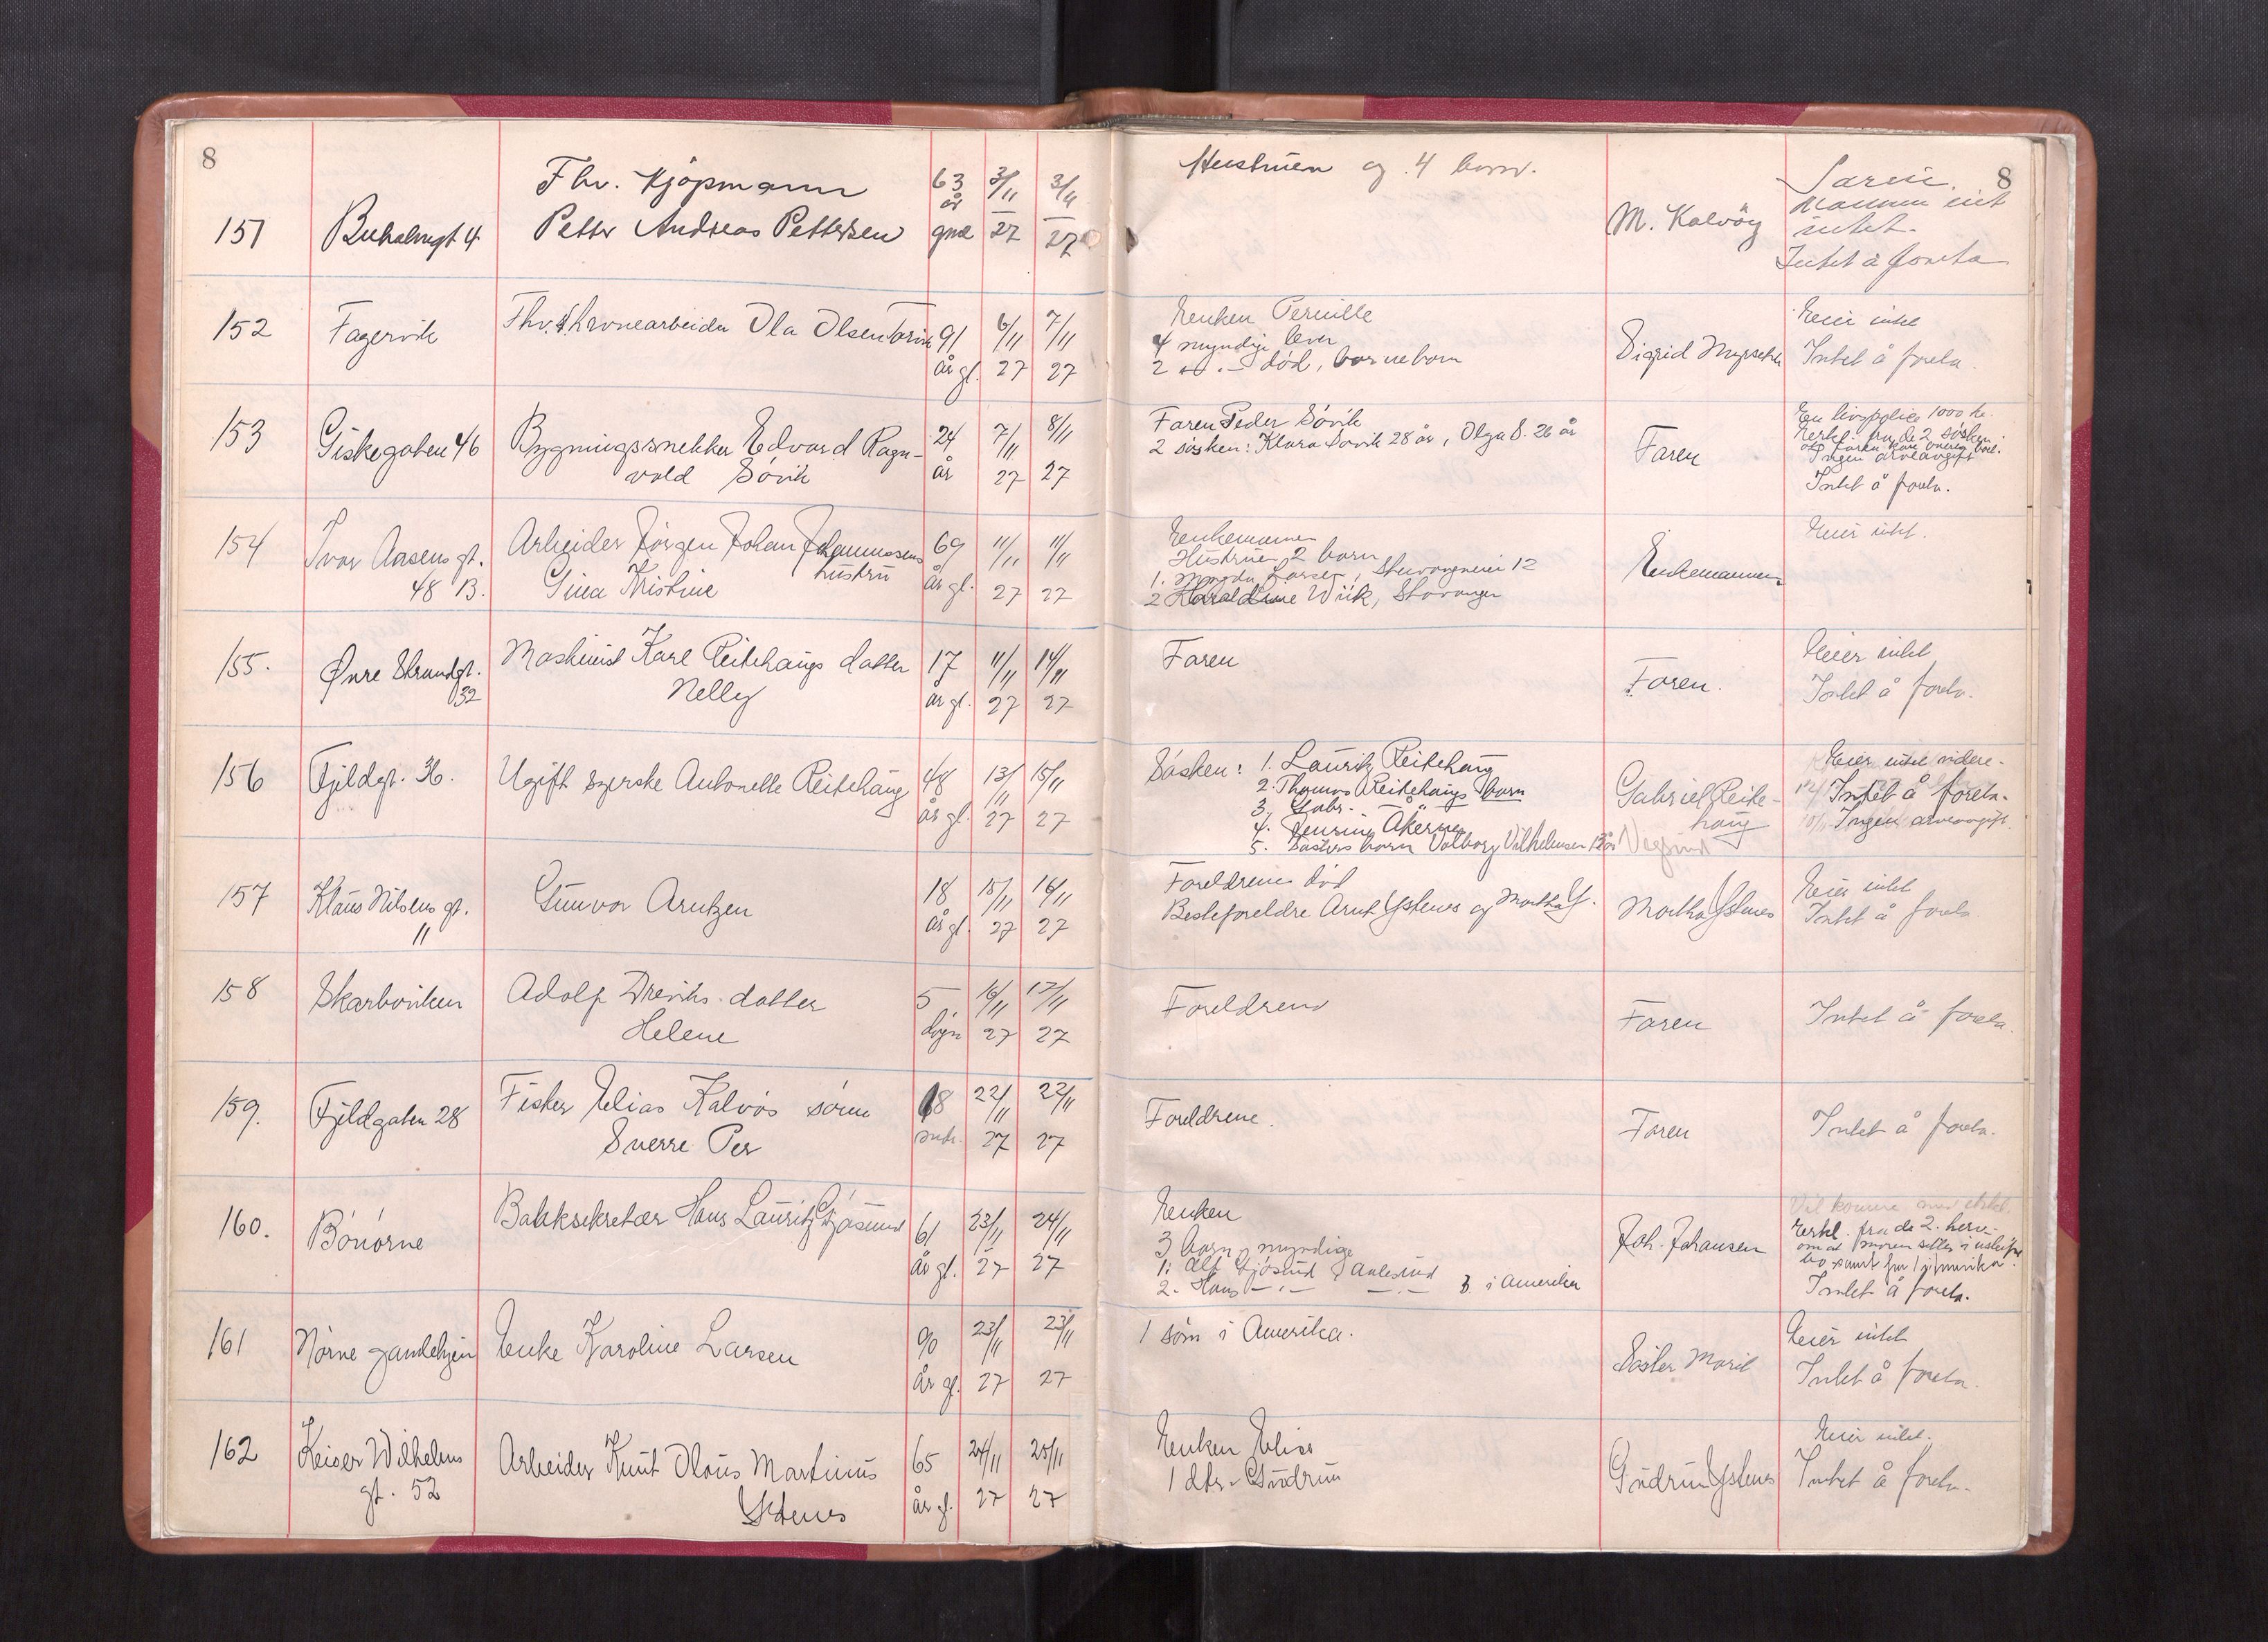 8
8
151
Fhv. Kjøpmann
Petter Andreas Pettersen
63 år gml
3/11 27
3/11 27
Hustruen og 4 barn.
M. Kalvøy
intet.
Intet å foreta
152
Fagervik
Fhv. Ola Olsen
91 år gl.
6/11 27
7/11 27
Enken Pernille
4 myndige lever
2 død, barnebarn
Sigrid
Eier intet
Intet å foreta.
153
Giskegaten 46
Bygningssnekker Edvard Ragn-
vald Søvik
24 år
7/11 27
8/11 27
Faren Peder Søvik
2 søsken: Klara Søvik 28 år, Olga S. 26 år
Faren
En livspolice 1000 kr.
Erkl. fra de 2 søsken
Ingen arveavgift
Intet å foreta.
154
Ivar Aasens gt.
48 B.
Arbeider Jørgen Johan Johannessens
hustru
Gina Kristine
69 år gl.
11/11 27
11/11 27
Enkemannen
Hustruen 2 barn
1. Larsen, 12
2 Wiik, Stavanger
Enkemannen
Eier intet.
155.
Øvre Strandgt.
32
Maskinist Karl Reitehaugs datter
Nelly
17 år gl.
11/11 27
14/11 27
Faren
Faren.
Eier intet
Intet å foreta.
156
Fjeldgt. 36.
Ugift syerske Antonette Reitehaug
48 år gl.
13/11 27
15/11 27
Søsken: 1. Lauritz Reitehaug
2. Thomas Reitehaugs barn
3. Gabr. — " —
4. Åkernes
5. Søsters barn Valborg Vilhelmsen
Gabriel Reite-
haug
Eier intet videre.
Intet å foreta.
Ingen arveavgift.
157
Klaus Nilsens gt.
11
Gunvor Arntzen
18 år gl.
15/11 27
16/11 27
Foreldrene død
Besteforeldre Arnt Ystenes og Martha Y.
Martha Ystenes
Eier intet
Intet å foreta
158
Skarbøviken
Adolf Dreviks datter
Helene
5 døgn
16/11 27
17/11 27
Foreldrene
Faren
Intet å foreta.
159.
Fjeldgaten 28
Fisker Elias Kalvøs sønn
Sverre Per
8 mdr.
22/11 27
22/11 27
Foreldrene.
Faren
Intet å foreta.
160.
Bønørne
Banksekretær Hans Lauritz Gjøsund
61 år gl.
23/11 27
24/11 27
Enken
3 barn, myndige
1. Alf Gjøsund Aalesund
2. Hans —.— —.— 3. i Amerika
Joh. Johansen
Vil komme med erkl.
Erkl. fra de 2. herv.
om at moren sitter i uskiftet
bo samt fra 1 i Amerika.
Intet å foreta.
161
Nørve gamlehjem
Enke Karoline Larsen
90 år gl.
23/11 27
23/11 27
1 sønn i Amerika.
Søster Marit
Eier intet
Intet å foreta.
162
Keiser Wilhelms
gt. 52
Arbeider Knut Olaus Martinus
Ystenes
65 år gl.
24/11 27
25/11 27
Enken Elise
1 dtr. Gudrun
Gudrun Ystenes
Eier intet.
Intet å foreta.